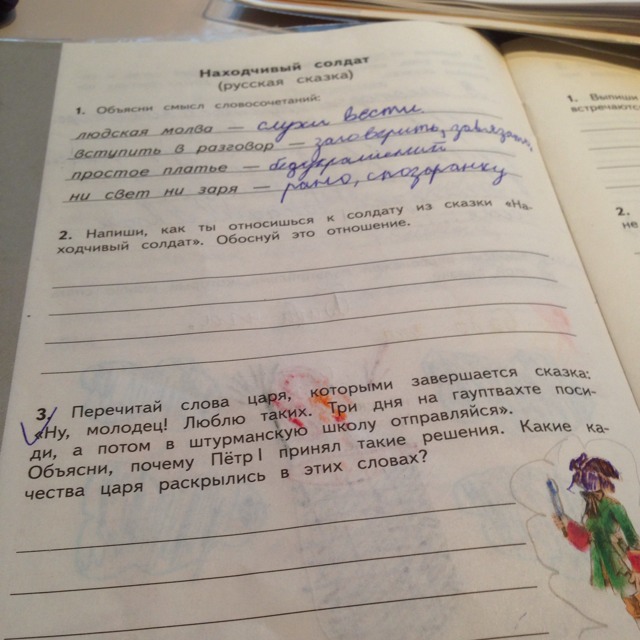 Находчивый солдат
(русская сказка)
1. Объясни смысл словосочетаний:
людская молва — слухи вести.
вступить в разговор — заговорить,
простое платье — без украшений
ни свет ни заря — рано, спозаранку
2. Напиши, как ты относишься к солдату из сказки «На-
ходчивый солдат». Обоснуй это отношение.
3. Перечитай слова царя, которыми завершается сказка:
«Ну, молодец! Люблю таких. Три дня на гауптвахте поси-
ди, а потом в штурманскую школу отправляйся».
Объясни, почему Пётр I принял такие решения. Какие ка-
чества царя раскрылись в этих словах?
1. Выпиши
встречаются
2.
не